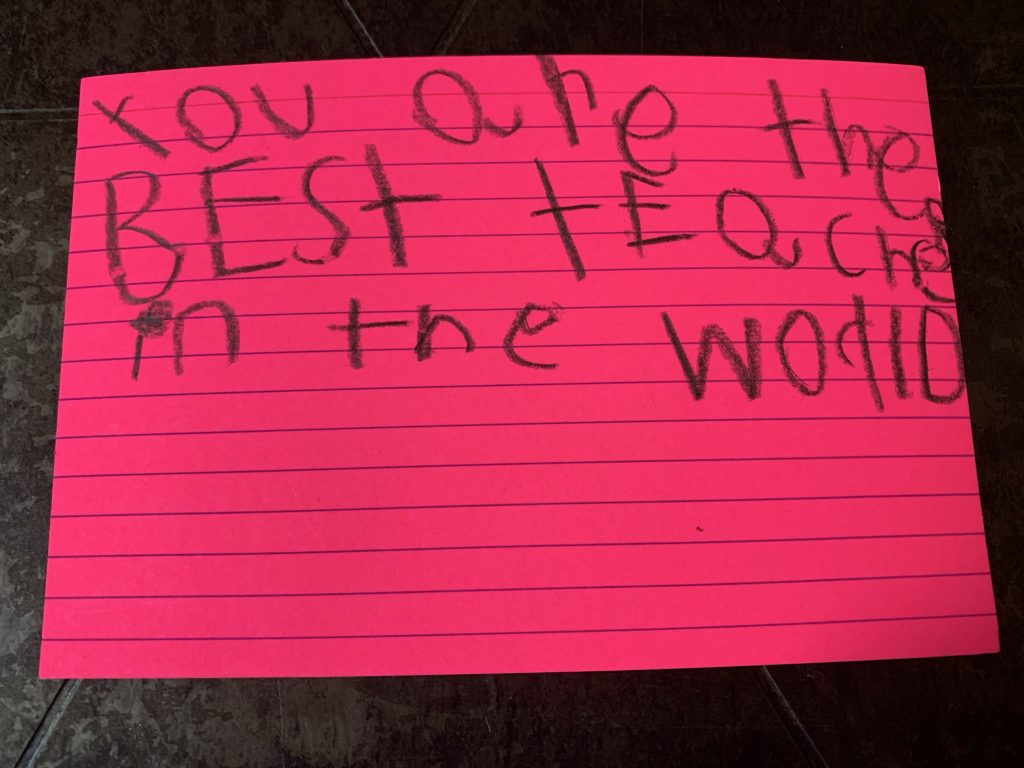 You are the
BEST tEacher
in the world